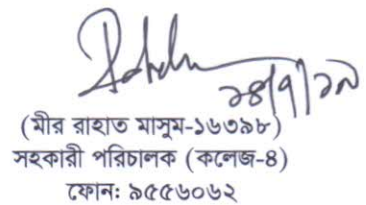 ১৪/৭/১৯
(মীর রাহাত মাসুম-১৬৩৯৮)
সহকারী পরিচালক (কলেজ-৪)
ফোন: ৯৫৫৬০৬২